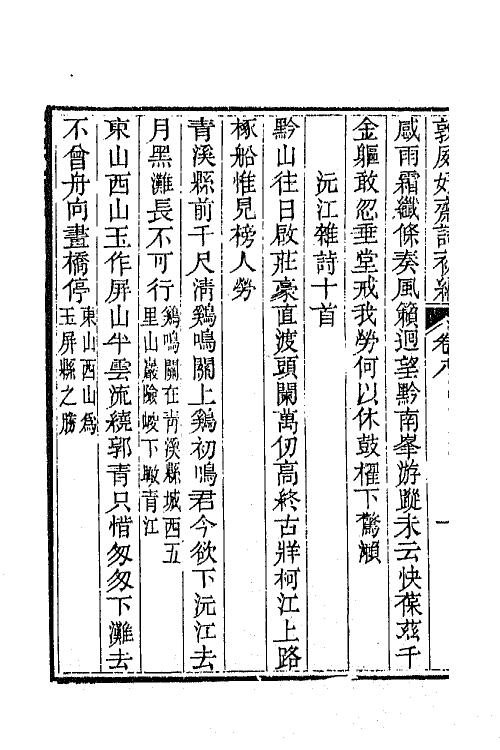 敦夙好齋詩初編 卷八
感雨霜纖條奏風籟迴望黔南峯游蹤未云快葆茲千
金軀敢忽垂堂戒我勞何以休鼓櫂下驚瀨
沅江雜詩十首
黔山往日啟莊豪直渡頭闌萬仞高終古牂柯江上路
椓船惟見榜人勞
青溪縣前千尺淸鷄鳴關上鷄初鳴君今欲下沅江去
月黑灘長不可行鷄鳴關在靑溪縣城西五里山巖險峻下瞰青江
東山西山玉作屏山半雲流繞郭青只惜匆匆下灘去
不曾舟向畫橋停東山西山爲玉屏縣之勝